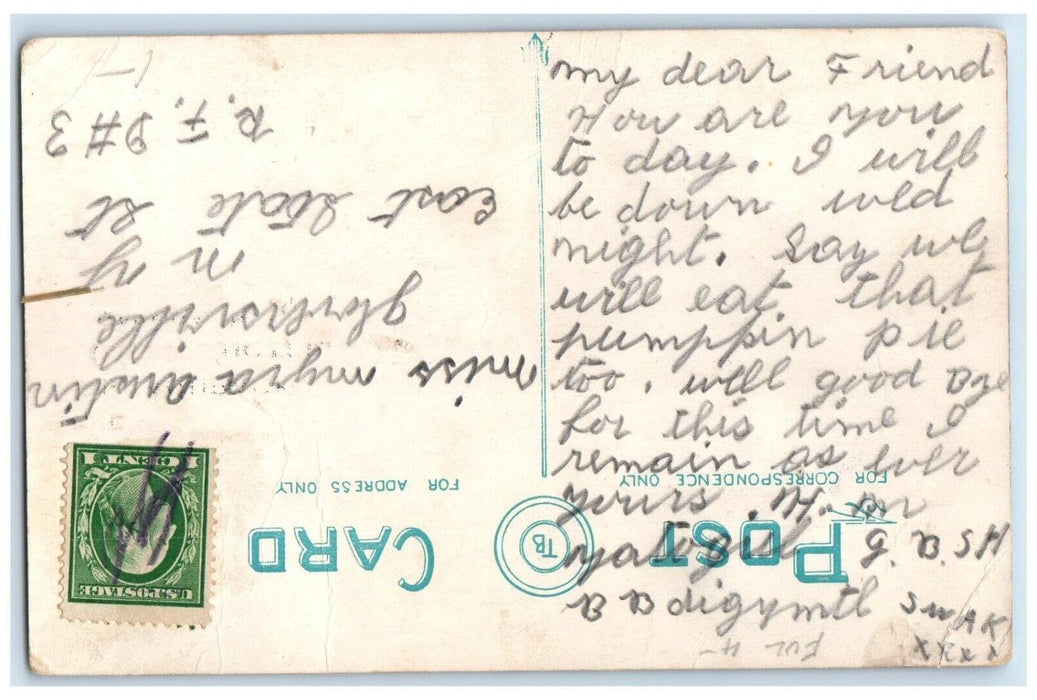 my dear Friend
How are you
to day. I will
be down wed
night. Say we
will eat that
pumppin pie
too. well good Bye
for this time I
remain as ever
yours. H. m
G. B. S H
B B digymtl S W A K
x x x x
POST CARD
TB
FOR CORRESPONDENCE ONLY
FOR ADDRESS ONLY
U.S. POSTAGE
1 CENT 1
miss myra austin
gloversville
n y
East State St
R. F. D # 3
1-